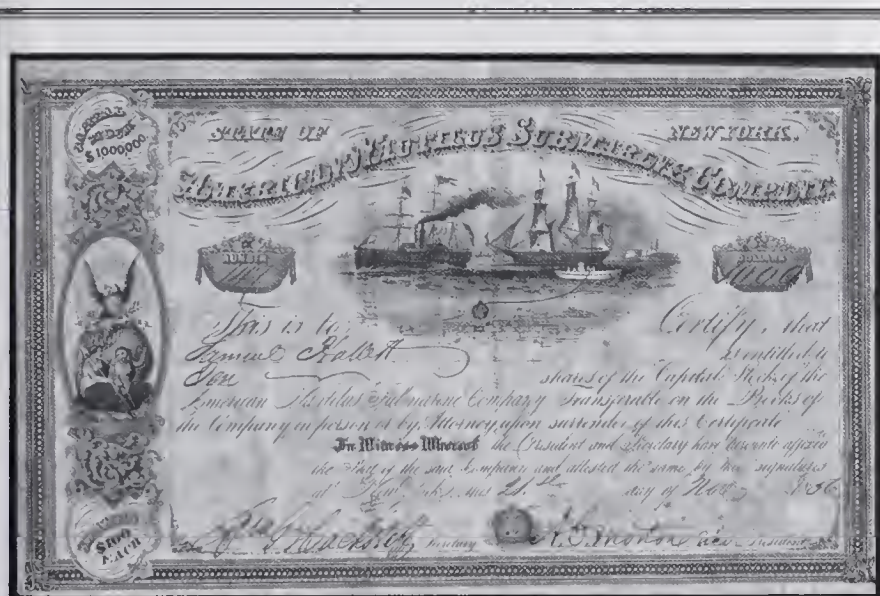 STATE OF NEW YORK.
AMERICAN NAUTILUS SUBMARINE COMPANY.
CAPITAL STOCK
$1000000.
NUMBER
DOLLARS
1000
This is to Certify, that
Samuel Hallett is entitled to
Ten shares of the Capital Stock of the
American Nautilus Submarine Company Transferable on the Books of
the Company in person or by Attorney, upon surrender of this Certificate
In Witness Whereof the President and Secretary have hereunto affixed
the Seal of the said Company and attested the same by their signatures
at New York, this 21.st day of Nov 1856
Secretary President
SHARES
$100
EACH